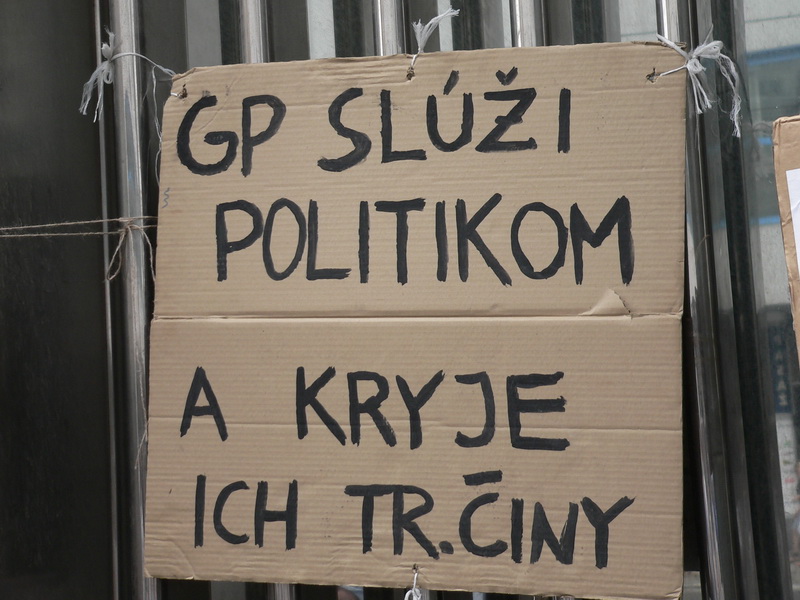 GP SLÚŽI
POLITIKOM
A KRYJE
ICH TR.ČINY